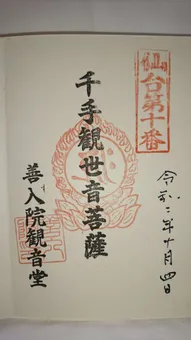 仙台第十番
令和二年十月四日
千手観世音菩薩
善入院観音堂